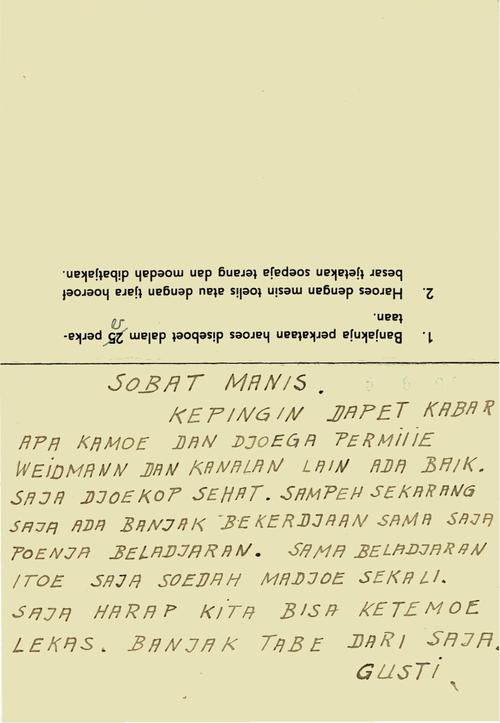 1. Banjaknja perkataan haroes diseboet dalam 25 perka-
taan.
2. Haroes dengan mesin toelis atau dengan tjara hoeroef
besar tjetakan soepaja terang dan moedah dibatjakan.
SOBAT MANIS.
KEPINGIN DAPET KABAR
APA KAMOE DAN DJOEGA PERMILIE
WEIDMANN DAN KANALAN LAIN ADA BAIK.
SAJA DJOEKOP SEHAT. SAMPEH SEKARANG
SAJA ADA BANJAK BEKERDJAAN SAMA SAJA
POENJA BELADJARAN. SAMA BELADJARAN
ITOE SAJA SOEDAH MADJOE SEKALI.
SAJA HARAP KITA BISA KETEMOE
LEKAS. BANJAK TABE DARI SAJA.
GUSTI